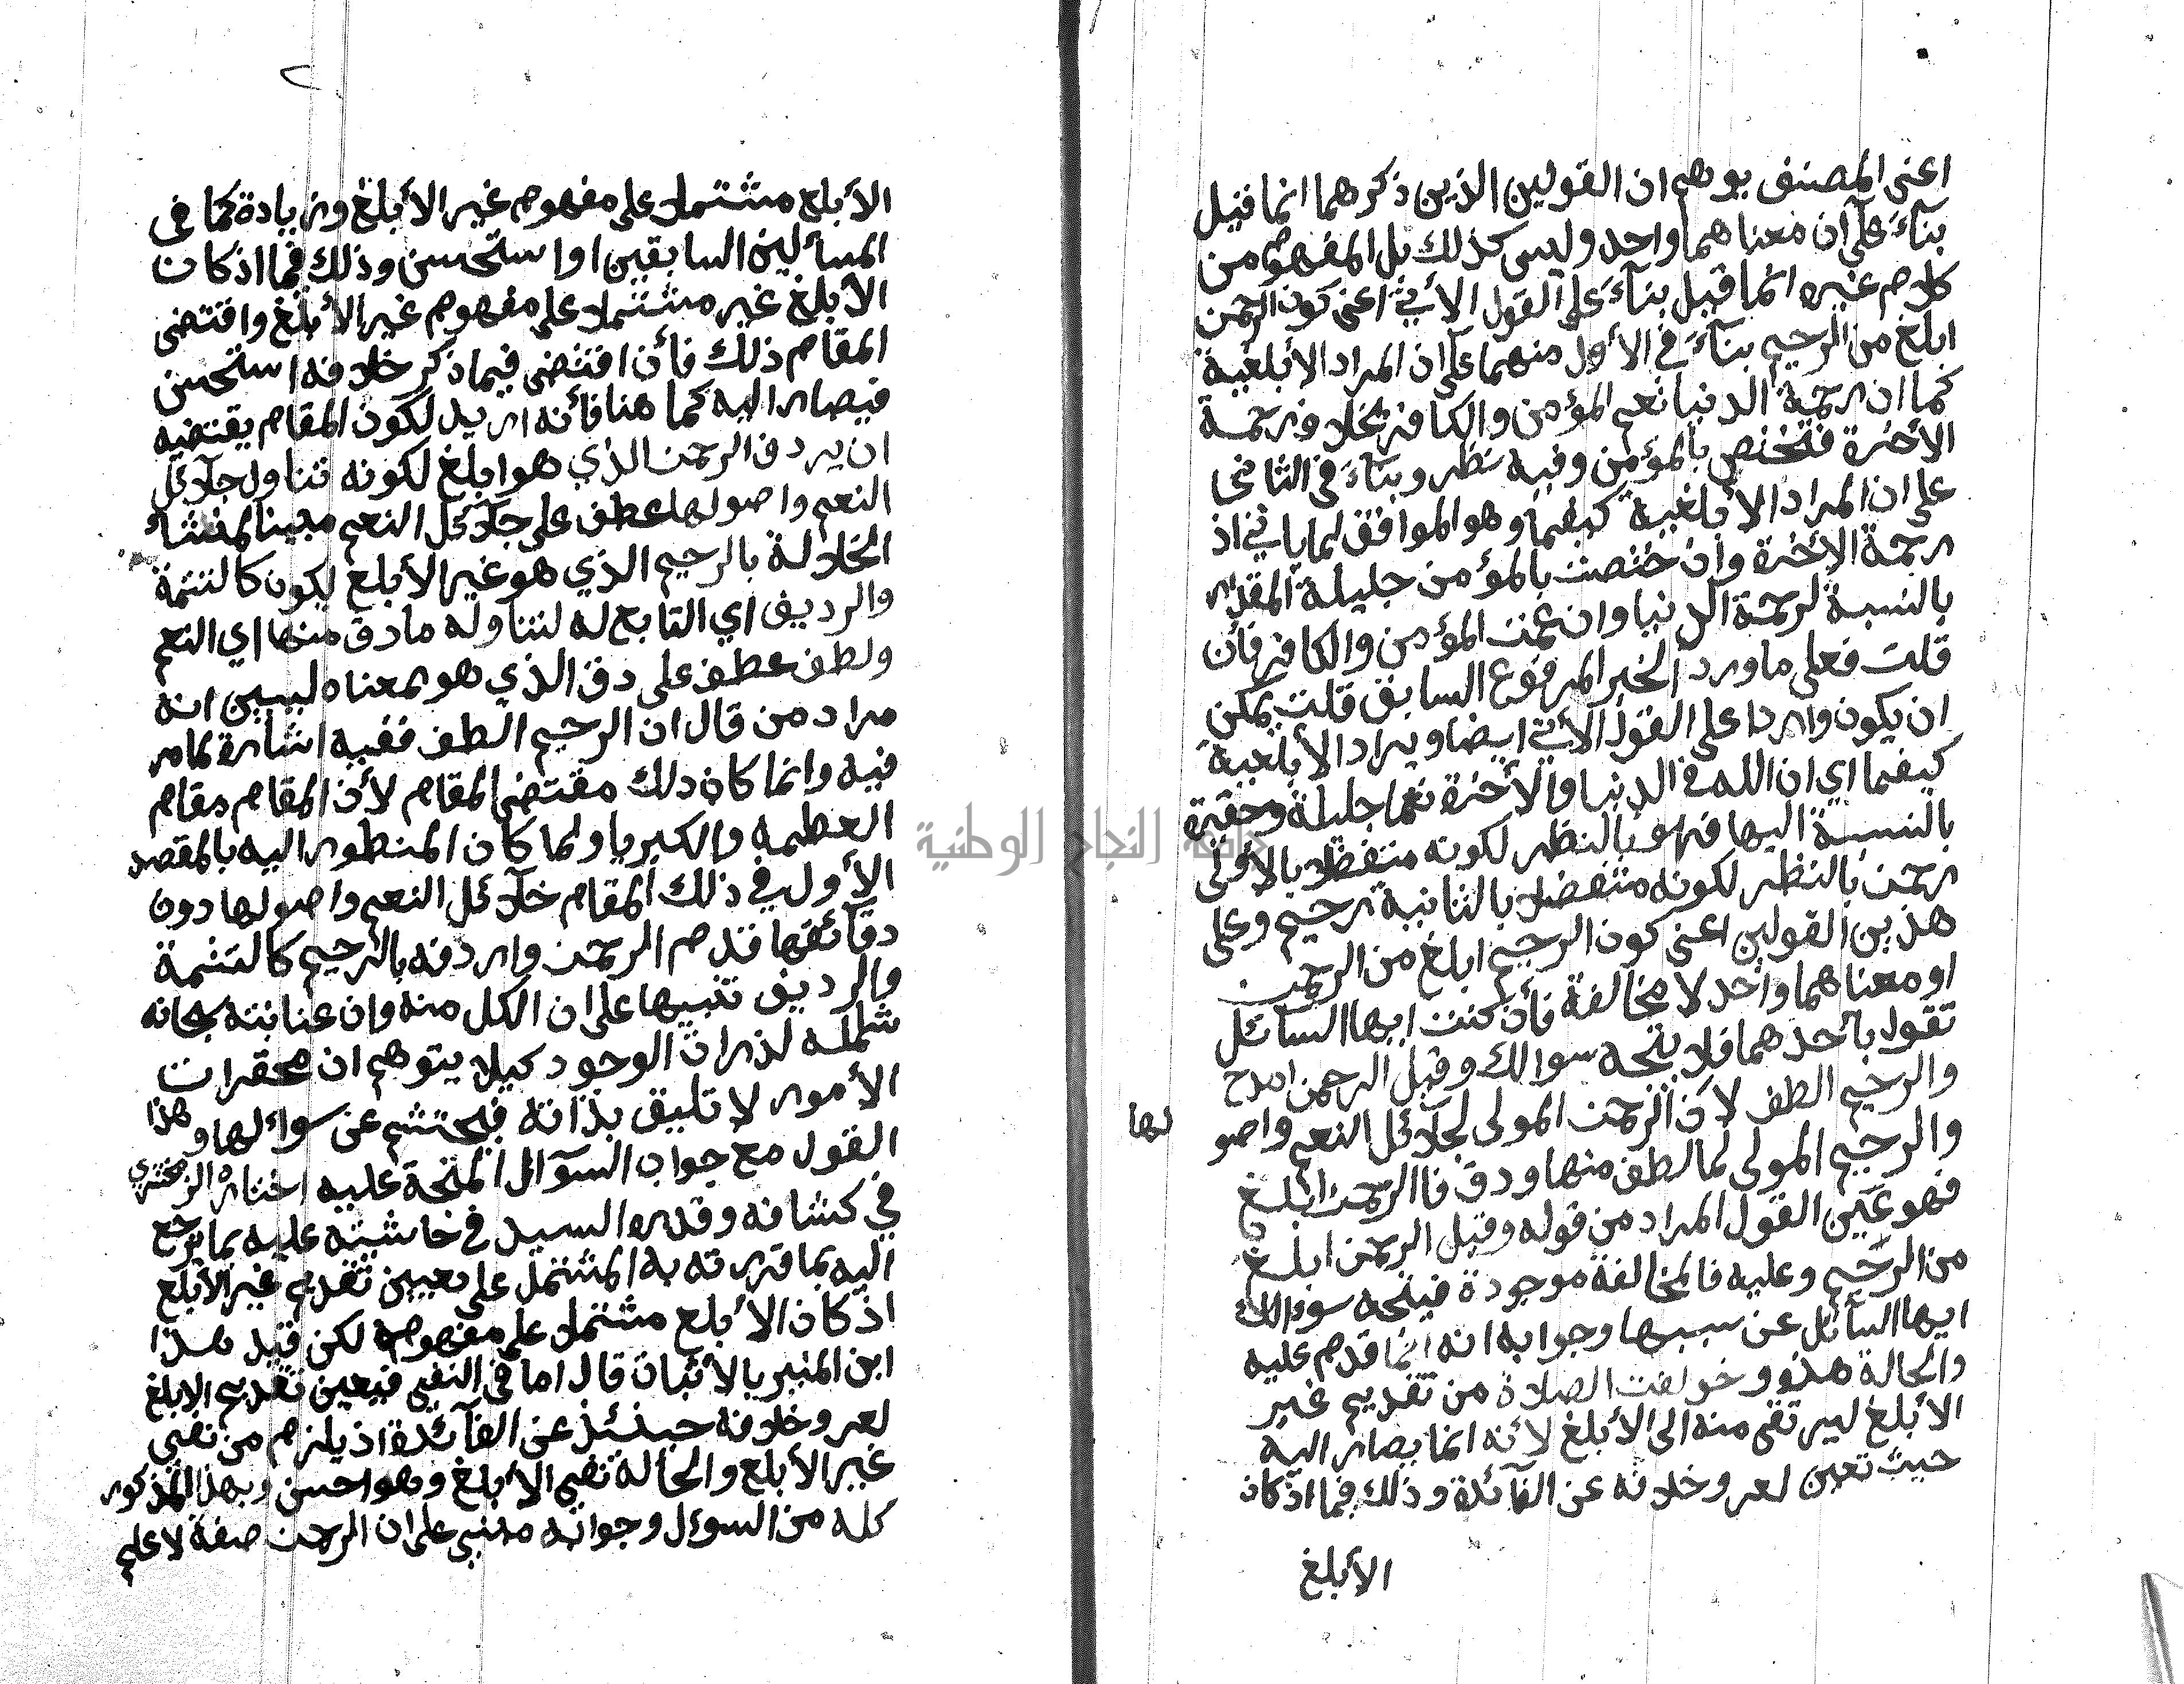 اعنى المصنف يوهم ان القولين الذين ذكرهما انما قيل
بنآءً على ان معناهما واحد وليس كذلك بل المفهوم من
كلام غيره انما قيل بنآءً على القول الأتي اعنى كون الرحمن
ابلغ من الرحيم بنآءً في الأول منهما على ان المراد الأبلغية
كما ان رحمة الدنيا تعم المؤمن والكافر بخلاف رحمة
الأخرة فتختص بالمؤمن وفيه نظر وبنآءً في الثاني
على ان المراد الأبلغية كيفما وهو الموافق لما ياتي اذ
رحمة الأخرة وان ختصت بالمؤمن جليلة المقدار
بالنسبة لرحمة الدنيا وان عمت المؤمن والكافر فأن
قلت فعلى ما ورد الخبر المرفوع السابق قلت يمكن
ان يكون واردا على القول الأتي ايضا ويراد الأبلغية
كيفما اي ان الله في الدنيا والأخرة نعما جليلة وحقيرة
بالنسبة اليها فهو بالنظر لكونه متفضلا بالأولى
رحمن بالنظر لكونه متفضلا بالثانية رحيم وعلى
هذين القولين اعنى كون الرحيم ابلغ من الرحمن
او معناهما واحد لا مخالفة فأن كنت ايها السآئل
تقول بأحدهما فلا يتجه سوالك وقيل الرحمن امدح
والرحيم الطف لأن الرحمن المولى لجلآئل النعم واصو
لها
والرحيم المولى لما لطف منها ودق فاالرحمن ابلغ
فهو عين القول المراد من قوله وقيل الرحمن ابلغ
من الرحيم وعليه فالمخالفة موجودة فيتجه سؤالك
ايها السآئل عن سببها وجوابه انه انما قدم عليه
والحالة هذه وخولفت الصلاة من تقديم غير
الأبلغ ليرتقى منه الى الأبلغ لأنه انما يصار اليه
حيث تعين لعروخلافه عن الفآئدة وذلك فيما اذ كان
الأبلغ
الأبلغ مشتملا على مفهوم غير الأبلغ وزيادة كما فى
المسألين السابقين او استحسن وذلك فيما اذ كان
الأبلغ غير مشتملا على مفهوم غير الأبلغ واقتضى
المقام ذلك فأن اقتضى فيما ذكر خلافه استحسن
فيصار اليه كما هنا فأنه اريد لكون المقام يقتضيه
ان يردف الرحمن الذي هو ابلغ لكونه تناول جلآئل
النعم واصولها عطف على جلآئل النعم مبينا لمنشأ
الجلالة بالرحيم الذي هو غير الأبلغ ليكون كالتتمة
والرديف اي التابع له لتناوله ما دق منها اي النعم
ولطف عطف على دق الذي هو بمعناه ليبين انه
مراد من قال ان الرحيم الطف ففيه اشارة لما مر
فيه وانما كان ذلك مقتضى المقام لأن المقام مقام
العظيمه والكبريا ولما كان المنظور اليه بالمقصد
الأول في ذلك المقام خلآئل النعم واصولها دون
دقآئقها قدم الرحمن واردفه بالرحيم كالتتمة
والرديف تنبيها على ان الكل منه وان عنايته بحانه
شاملة لذرات الوجود كيلا يتوهم ان محقرات
الأمور لا تليق بذاته فيحتشم عن سوائلها وهذا
القول مع جواب السوآل المتجة عليه اختاره الزمخشري
في كشافه وقدره السيد في حاشيته عليه بما يرجع
اليه بما قررته به المشتمل على تعيين تقديم غير الأبلغ
اذ كان الأبلغ مشتملا على مفهومه لكن قيد هذا
ابن المنير بالأثبات قال اما فى النفى فيعين تقديم الابلغ
لعروخلافه حينئذ عن الفآئدة اذ يلزم من نفى
غير الأبلغ والحالة نفى الأبلغ وهو احسن وبهذا المذكور
كله من السوءل وجوابه مبنى على ان الرحمن صفة لا علم
جامعة النجاح الوطنية